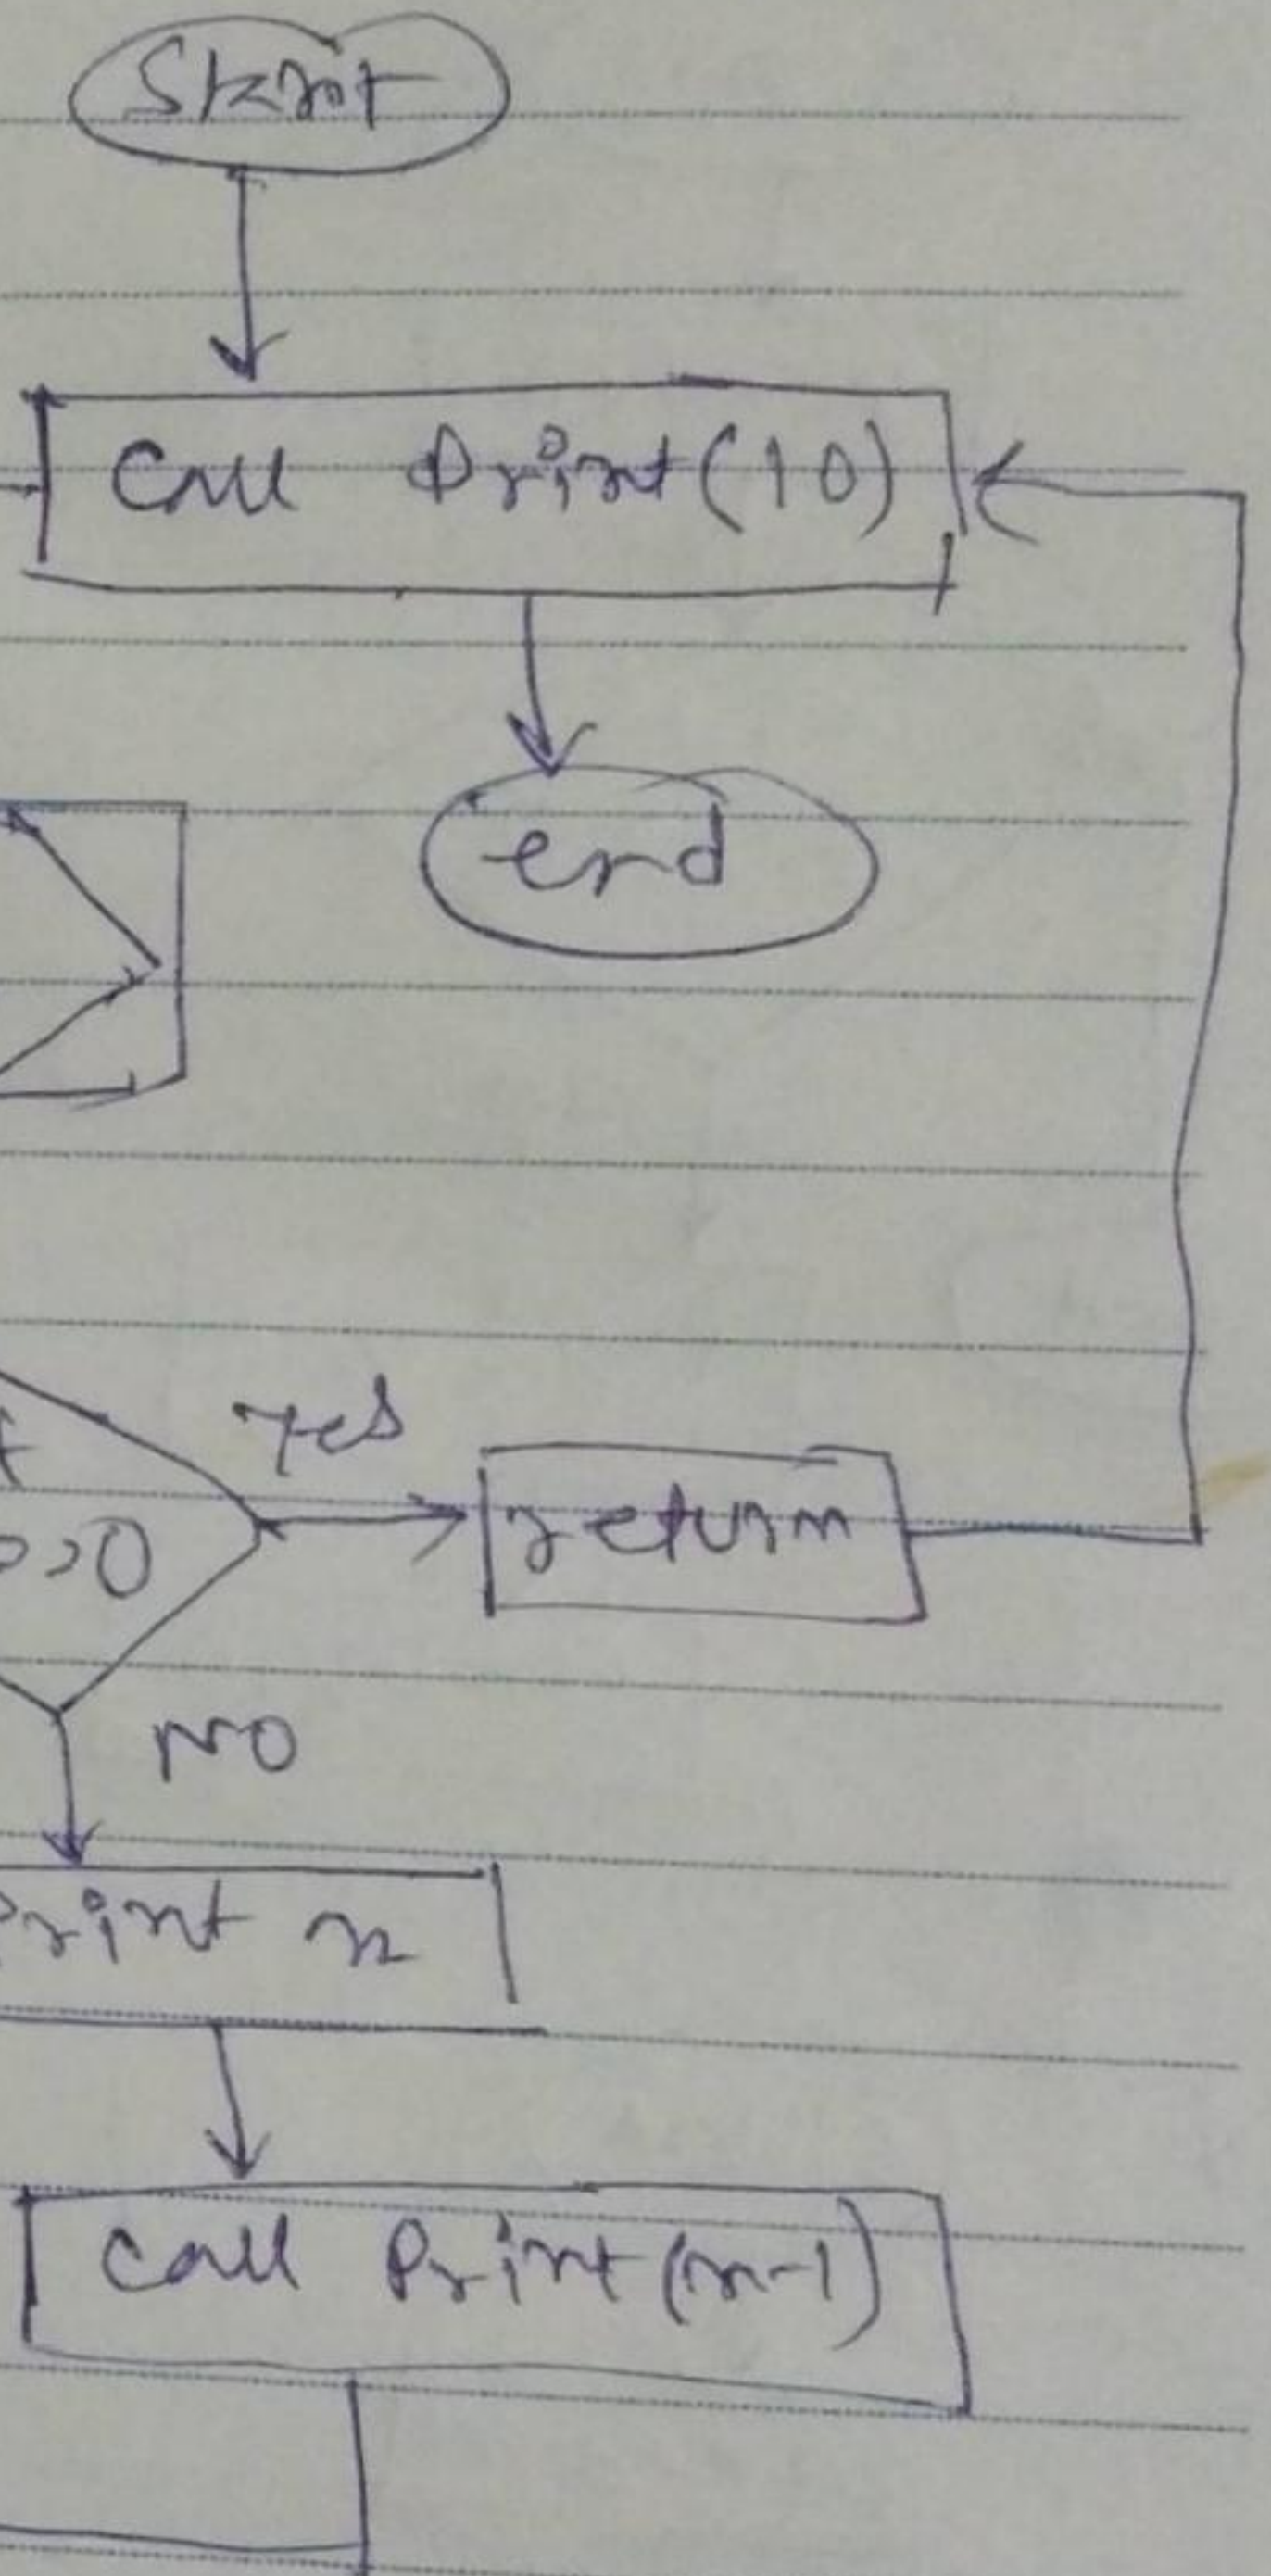 Start
Call Print(10)
end
yes
return
NO
Print n
Call Print(n-1)